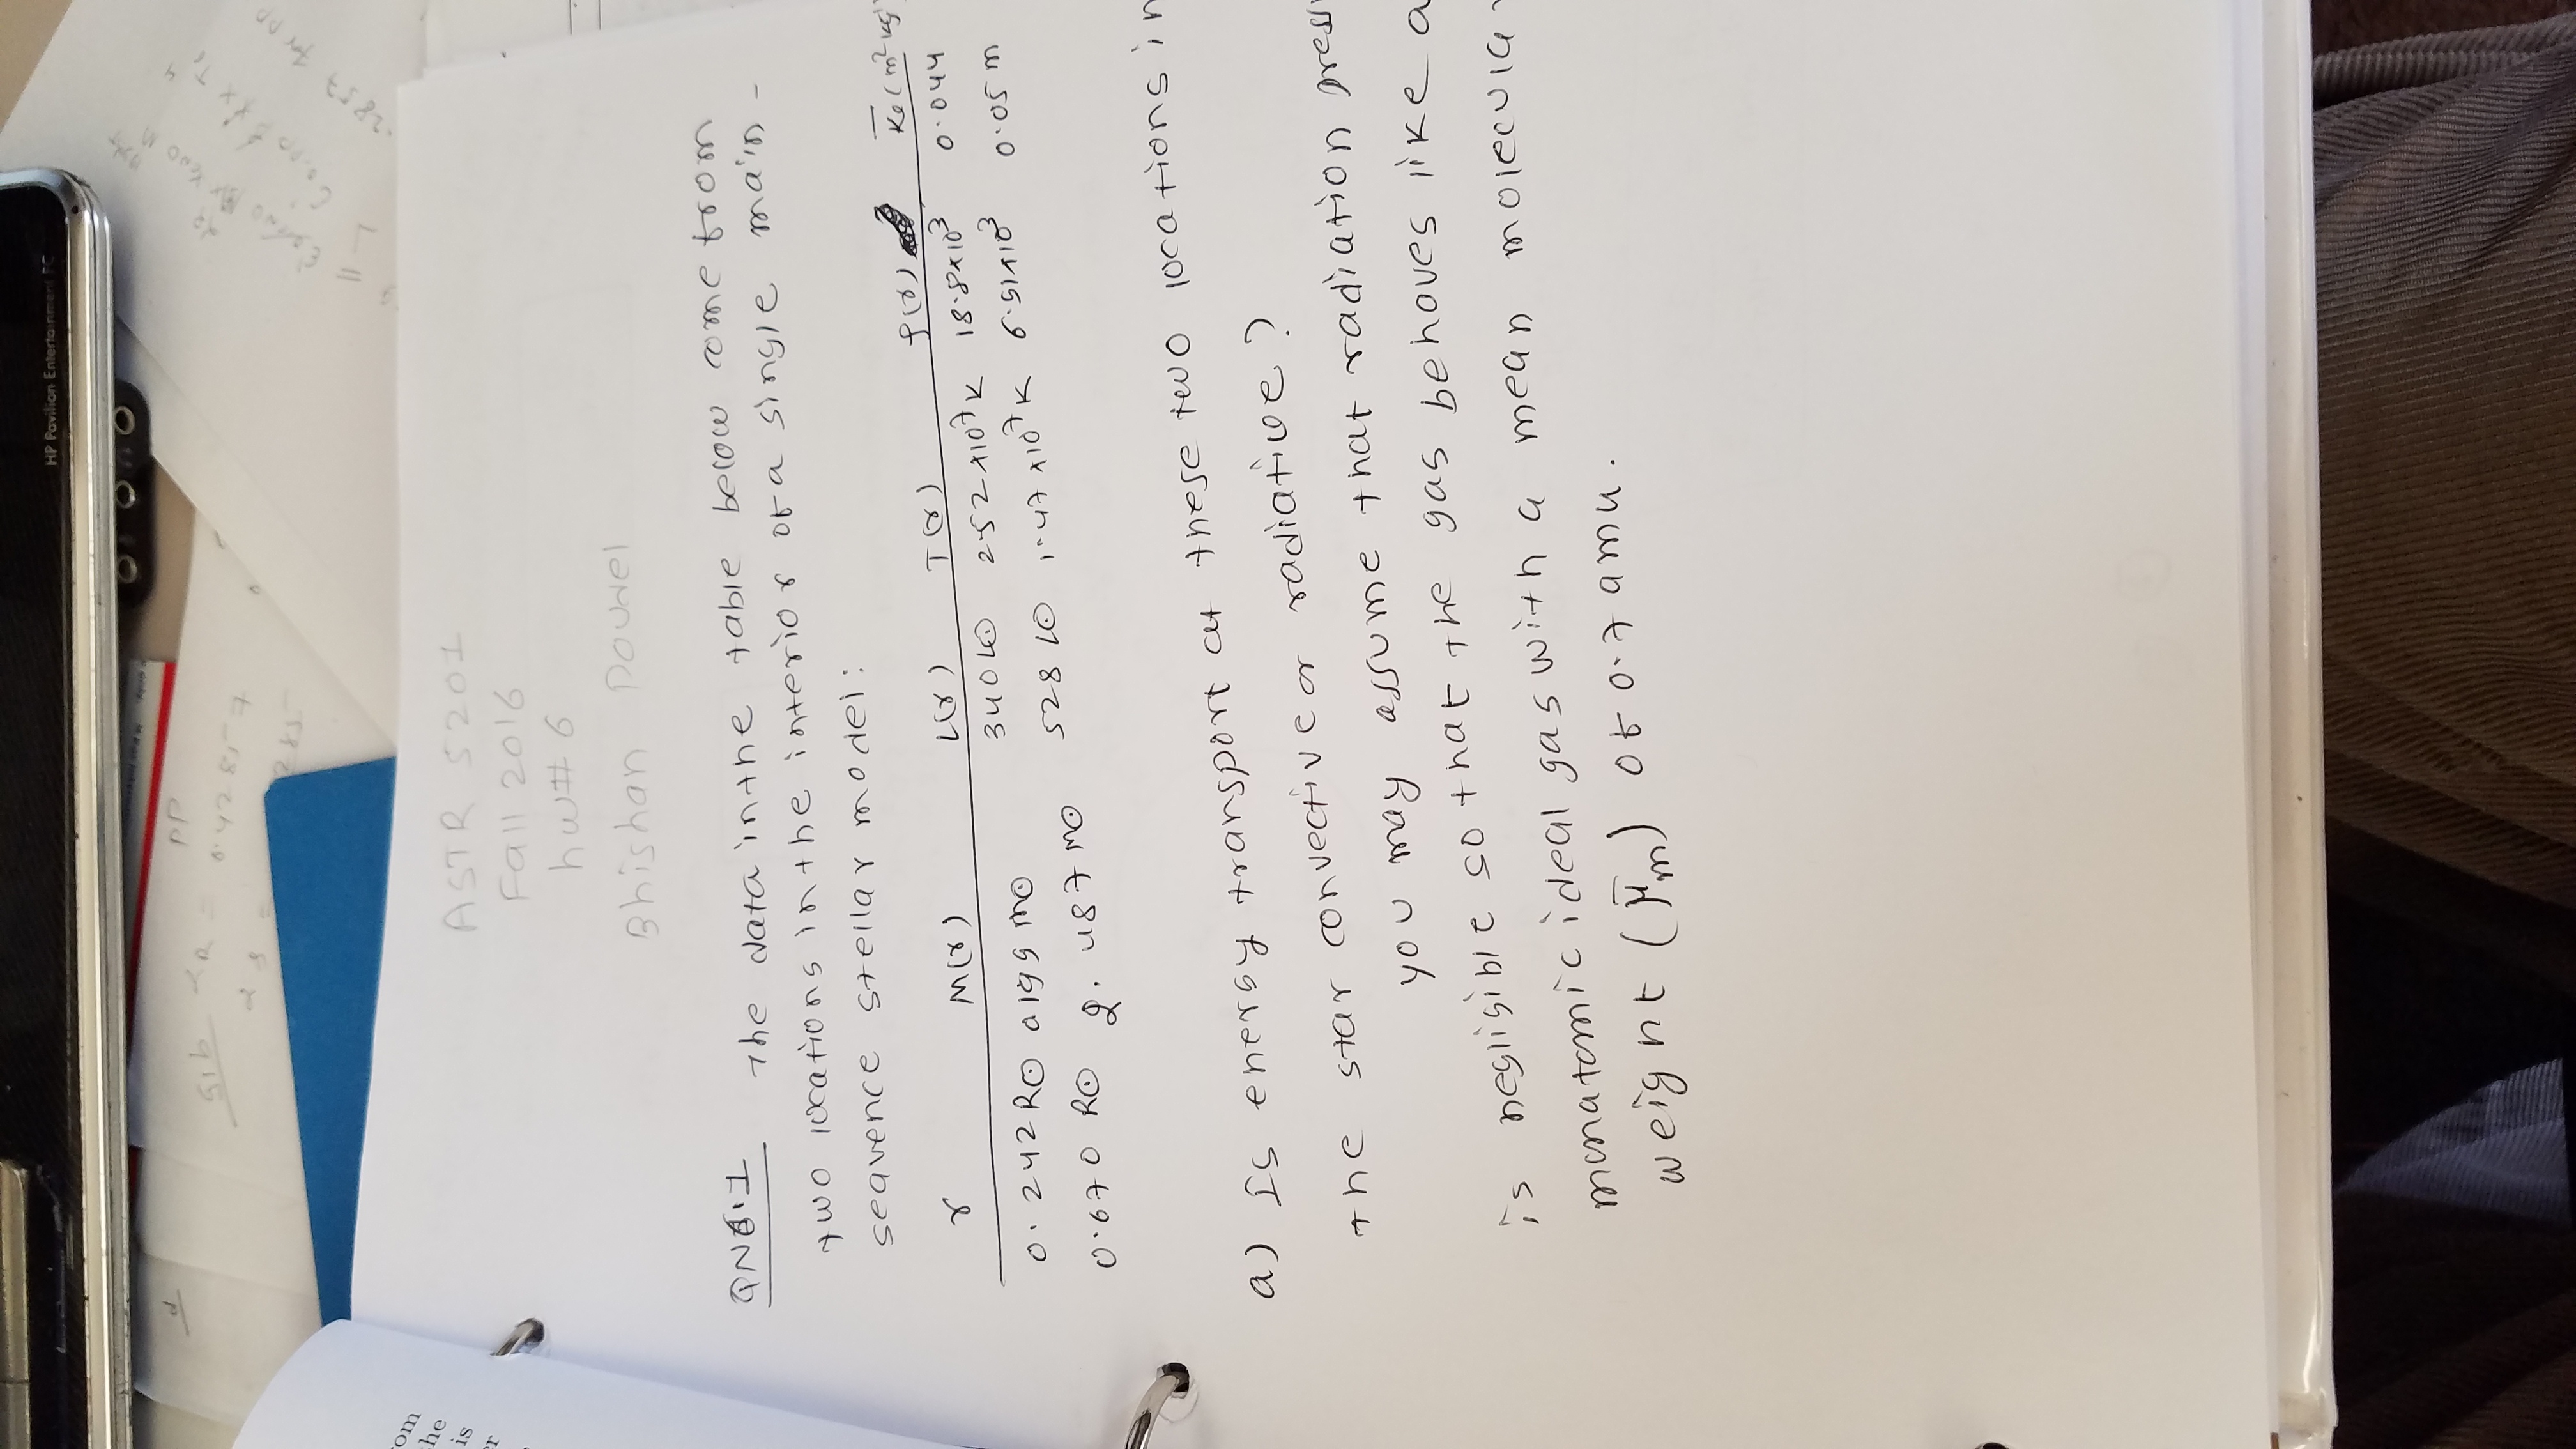 HP Pavilion Entertainment PC
PP
51b αR = 0.42857
om
he
is
er
ASTR 5201
Fall 2016
hw# 6
Bhishan Poudel
QN6.1 The data in the table below come from
two locations in the interior of a single main-
sequence stellar model:
r M(r) L(r) T(r) ρ(r) κ̅e (m² kg⁻¹)
0.242 R⊙ 0.199 M⊙ 340 L⊙ 2.52 x10⁷ K 18.8x10³ 0.044
0.670 R⊙ 2.487 M⊙ 528 L⊙ 1.47 x10⁷ K 6.91x10³ 0.05 m
a) Is energy transport at these two locations in
the star convective or radiative?
you may assume that radiation press
is negligible so that the gas behaves like a
monatomic ideal gas with a mean molecular
weight (μ̅m) of 0.7 amu.